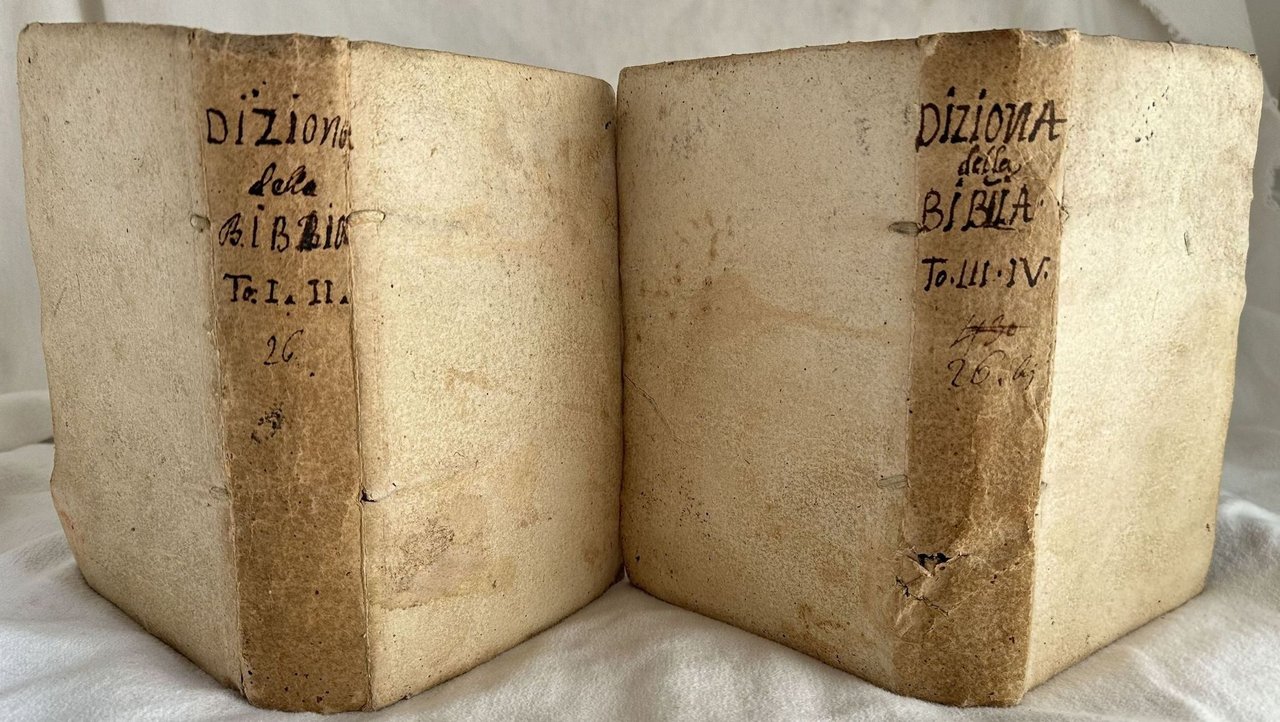 DiZiona
della
BiBLia
To. I. II.
26.
DiZionA
della
BiBLiA.
To. III. IV.
26. bis